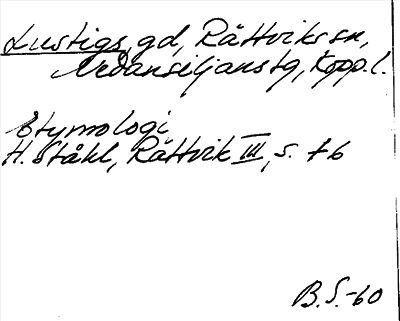 Lustigs, gd, Rättviks sn,
Nedansiljans tg, Kopp.l.
Etymologi
H. Ståhl, Rättvik III, s. 76
B.S.-60